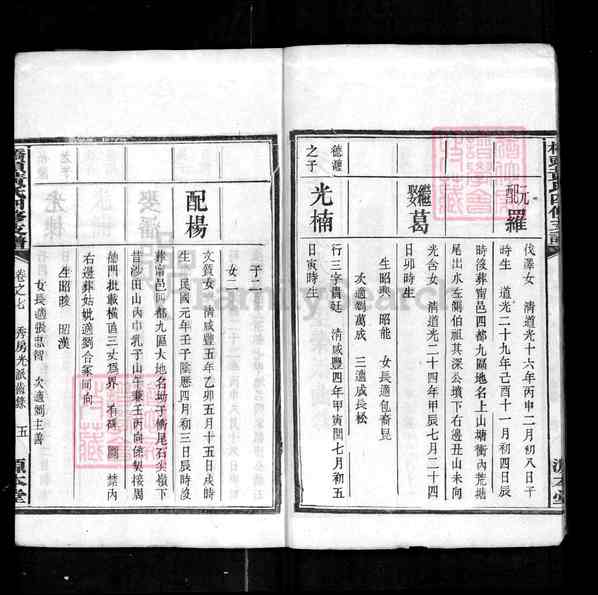 元配
羅
伐澤女 清道光十六年丙申二月初八日午
時生 道光二十九年己酉十一月初四日辰
時後葬甯邑四都九區地名上山塘衝內荒塘
尾出水左𫝑伯祖其深公墳下右邊丑山未向
繼娶
葛
光含女 清道光二十四年甲辰七月二十四
日卯時生
生昭興 昭能 女長適包裔見
次適劉萬成 三適成長松
德
之子
光楠
行三字貴廷 清咸豐四年甲寅閏七月初五
日寅時生
配楊
文質女 清咸豐五年乙卯五月十五日戌時
生 民國元年壬子陰歷四月初三日辰時沒
葬甯邑四都九區大地名坳子橋尾石尖嶺下
昔沙田山內巾乳子山午兼壬丙向係契接周
德門批載橫直三丈為界 禁內
右邊葬姑妣適劉合冢同向
子二
女二
生昭睃 昭漢
女長適張忠智 次適劉主善
卷之七
秀房光派齒錄 五
源本堂
FamilySearch